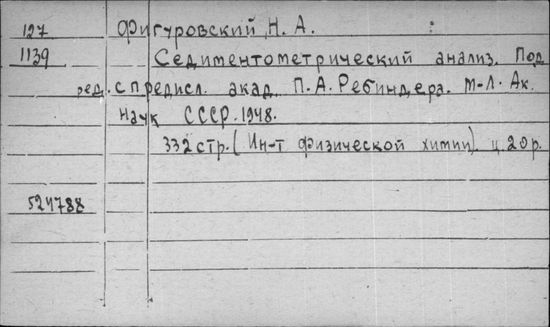 127 Фигуровский, Н. А.
1139 Седиментометрический анализ. Под
ред. с предисл. акад. П. А. Ребиндера. М-Л. Ак.
Наук СССР. 1948.
332 стр. (Ин-т физической химии). ц. 20 р.
524788